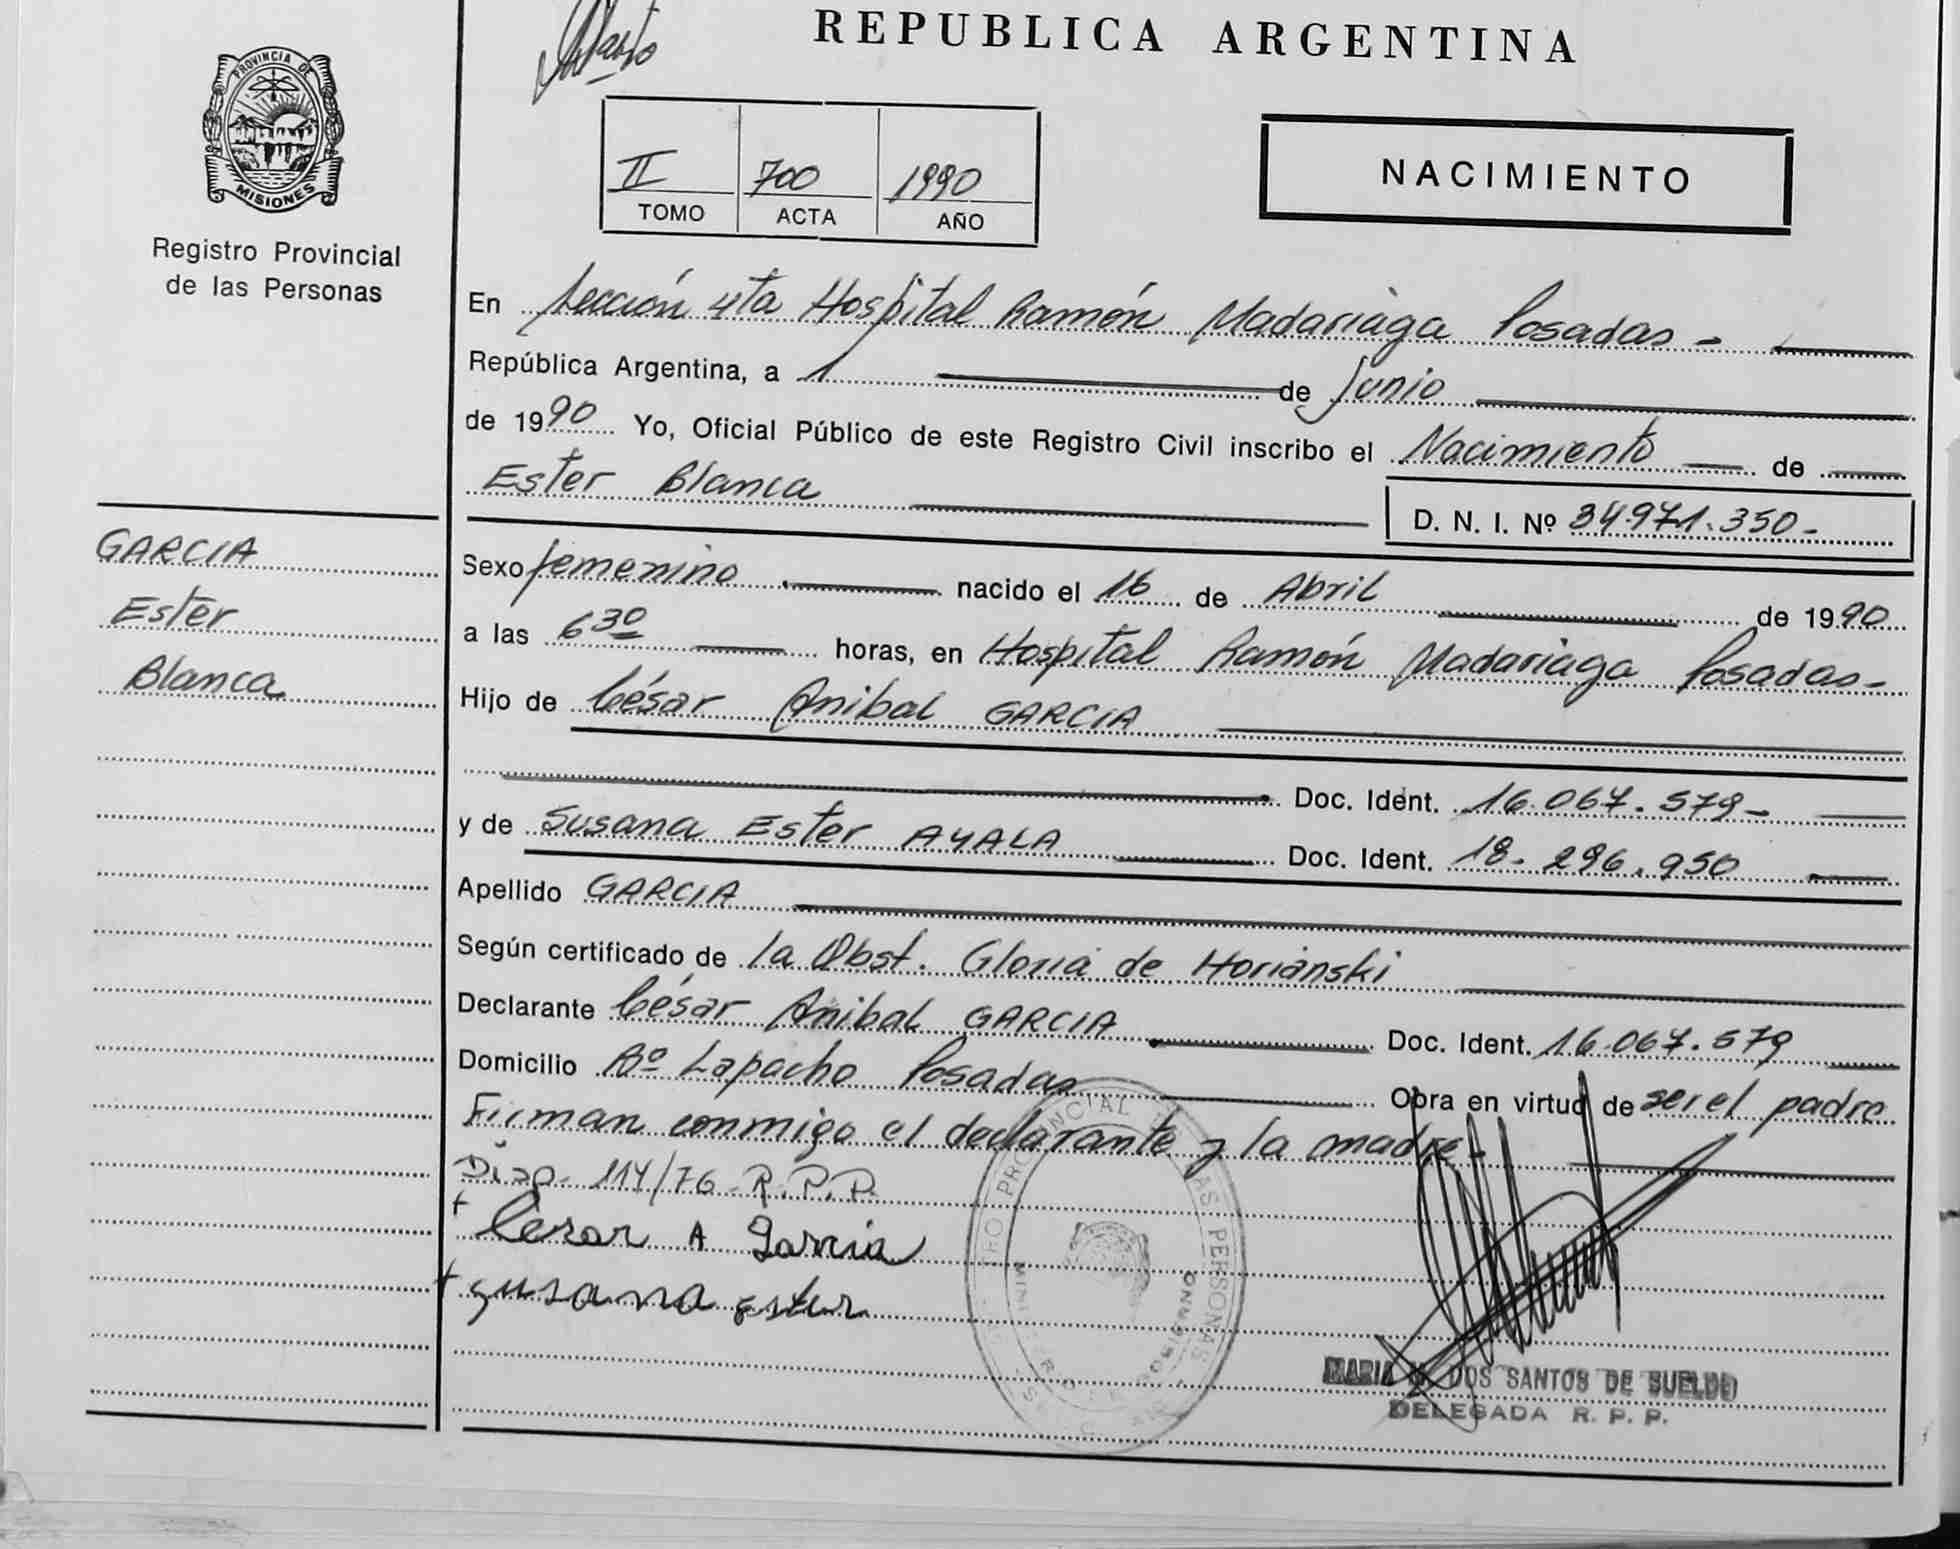 REPUBLICA ARGENTINA
PROVINCIA DE
MISIONES
Registro Provincial
de las Personas
II 700 1990
TOMO ACTA AÑO
NACIMIENTO
En Sección 4ta Hospital Ramón Madariaga Posadas -
República Argentina, a 1 de Junio
de 1990 Yo, Oficial Público de este Registro Civil inscribo el Nacimiento de
Ester Blanca
D. N. I. Nº 34.971.350-
GARCIA
Ester
Blanca
Sexo femenino nacido el 16 de Abril de 1990
a las 6 30 horas, en Hospital Ramón Madariaga Posadas-
Hijo de César Anibal GARCIA
Doc. Ident. 16.067.579-
y de Susana Ester AYALA Doc. Ident. 18.296.950
Apellido GARCIA
Según certificado de la Obst. Gloria de Horianski
Declarante César Anibal GARCIA Doc. Ident. 16.067.579
Domicilio Bº Lapacho Posadas Obra en virtud de ser el padre
Firman conmigo el declarante y la madre-
Disp. 114/76 R.P.P.
Cesar A Garcia
susana ester
PROVINCIAL DE LAS PERSONAS
MARIA DOS SANTOS DE SUELDO
DELEGADA R. P. P.